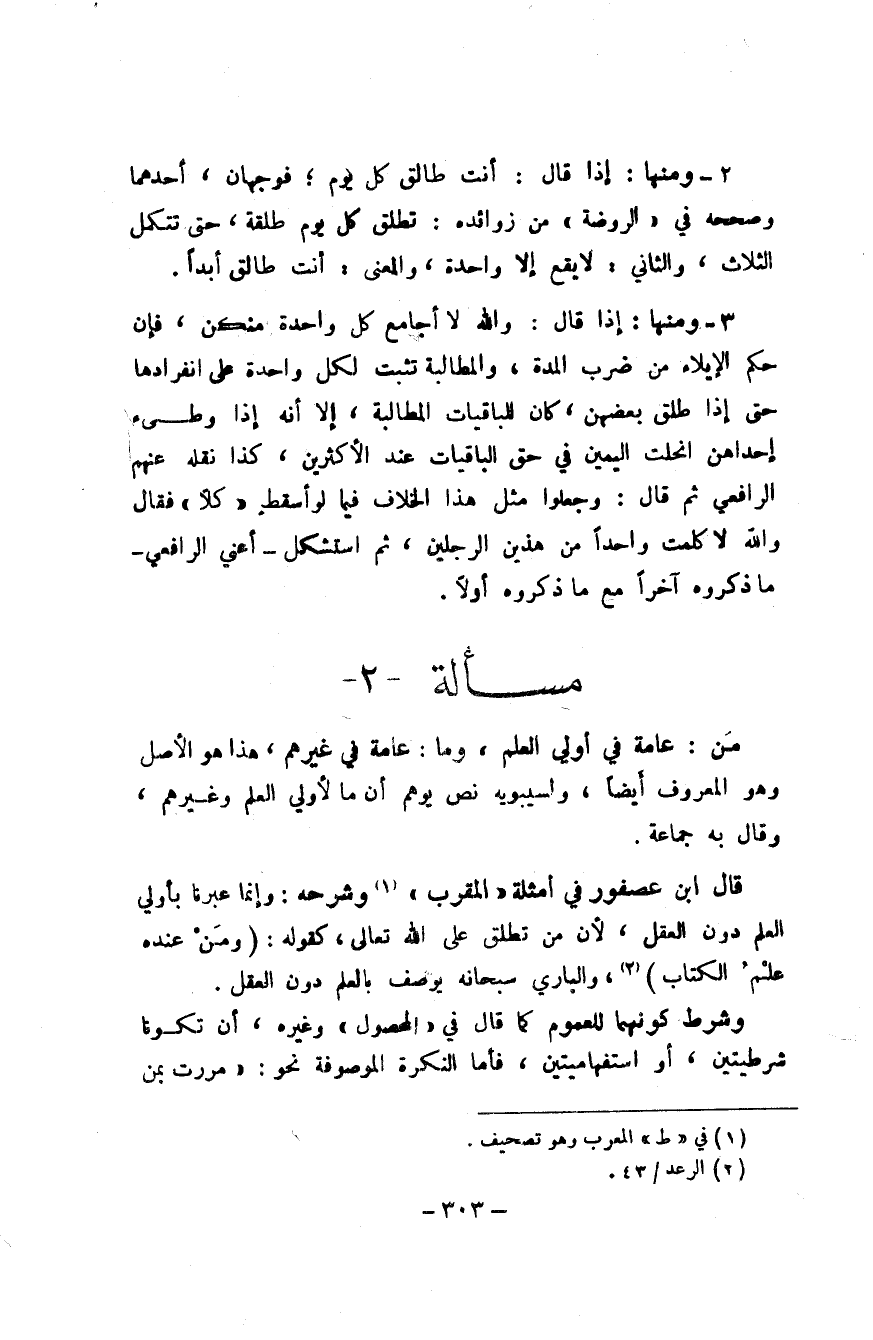 ٢ ـ ومنها : إذا قال : أنت طالق كل يوم ؛ فوجهان ، أحدهما
وصححه في « الروضة » من زوائده : تطلق كل يوم طلقة ، حتى تتكمل
الثلاث ، والثاني : لايقع إلا واحدة ، والمعنى : أنت طالق أبداً .
٣ ـ ومنها : إذا قال : والله لا أجامع كل واحدة منكن ، فإن
حكم الإيلاء من ضرب المدة ، والمطالبة تثبت لكل واحدة على انفرادها
حتى إذا طلق بعضهن ، كان للباقيات المطالبة ، إلا أنه إذا وطـــىء
إحداهن انحلت اليمين في حق الباقيات عند الأكثرين ، كذا نقله عنهم
الرافعي ثم قال : وجعلوا مثل هذا الخلاف فيما لو أسقط « كلاً » فقال
والله لا كلمت واحداً من هذين الرجلين ، ثم استشكل ـ أعني الرافعي ـ
ما ذكروه آخراً مع ما ذكروه أولاً .
مســـألة -٢-
مَن : عامة في أولي العلم ، وما : عامة في غيرهم ، هذا هو الأصل
وهو المعروف أيضاً ، ولسيبويه نص يوهم أن ما لأولي العلم وغــيرهم ،
وقال به جماعة .
قال ابن عصفور في أمثلة « المقرب » (١) وشرحه : وإنما عبرنا بأولي
العلم دون العقل ، لأن من تطلق على الله تعالى ، كقوله : ( ومَنْ عنده
علْمُ الكتاب ) (٢) ، والباري سبحانه يوصف بالعلم دون العقل .
وشرط كونهما للعموم كما قال في « المحصول » وغيره ، أن تكــونا
شرطيتين ، أو استفهاميتين ، فأما النكرة الموصوفة نحو : « مررت بمن
(١) في « ط » المعرب وهو تصحيف .
(٢) الرعد / ٤٣ .
ـ ٣٠٣ ـ